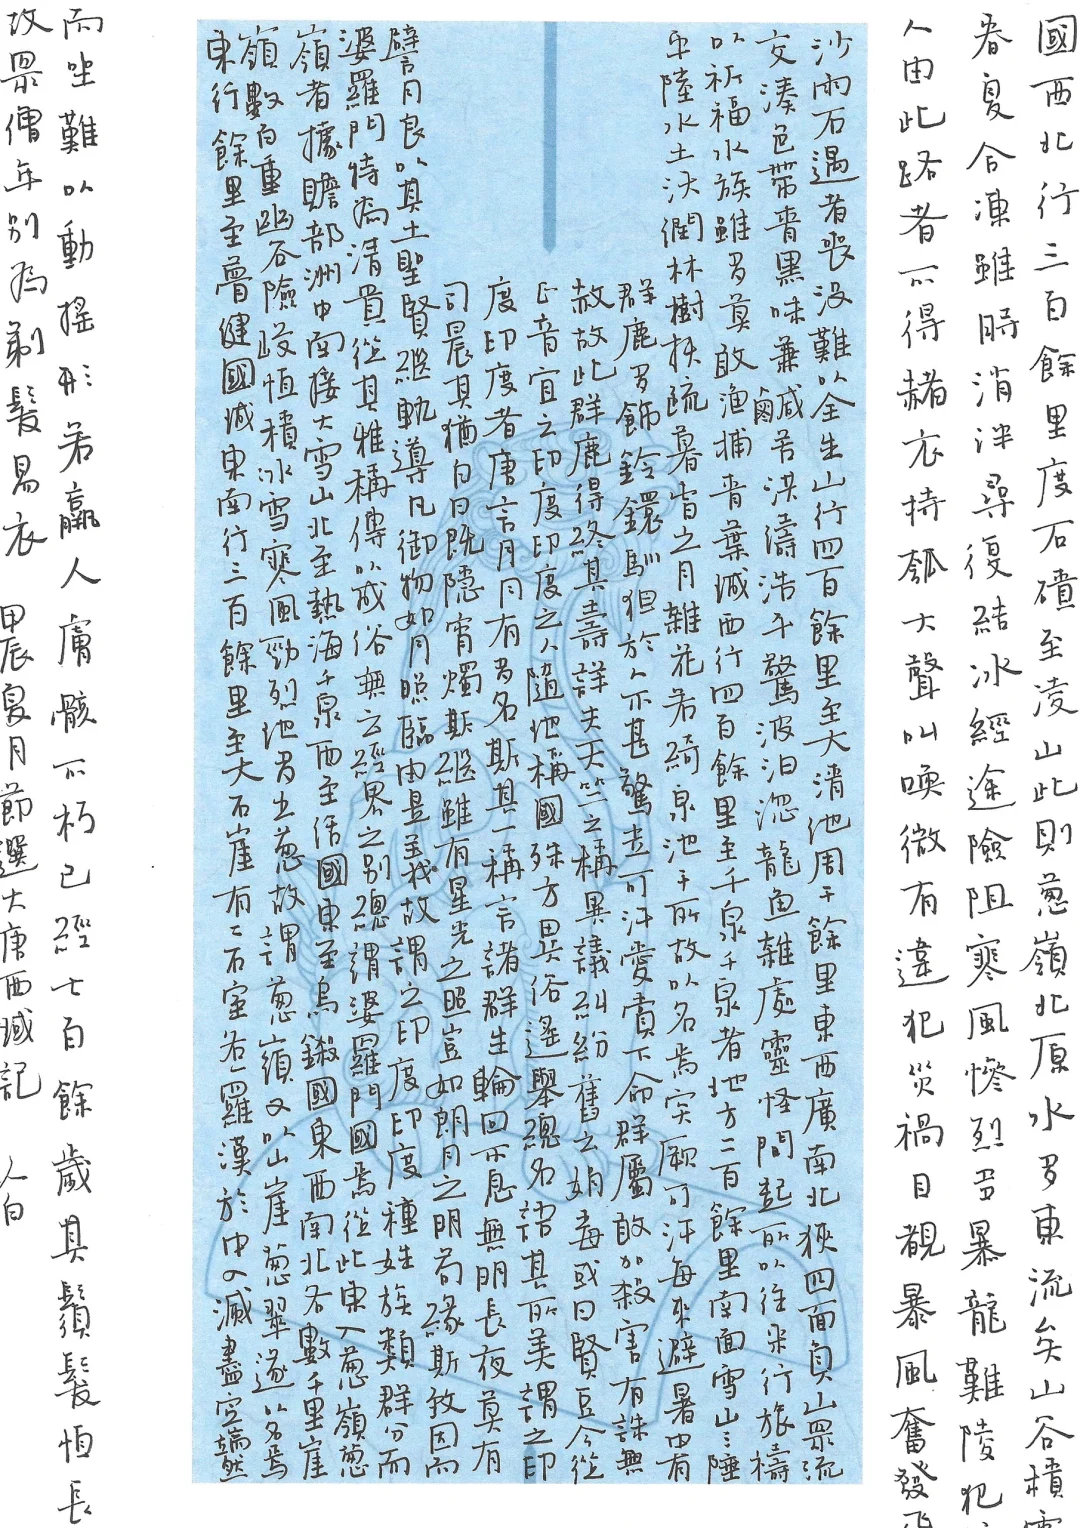 國西北行三百餘里度石磧至凌山此則葱嶺北原水多東流矣山谷積雪
春夏合凍雖時消泮尋復結冰經途險阻寒風慘烈多暴龍難陵犯
人由此路者不得赭衣持瓠大聲叫喚微有違犯災禍目覩暴風奮發飛
沙雨石遇者喪没難以全生山行四百餘里至大清池周千餘里東西廣南北狹四面負山眾流
交湊色帶青黑味兼鹹苦洪濤浩汗驚波汩淴龍魚雜處靈怪間起所以往来行旅禱
以祈福水族雖多莫敢漁捕青葉城西行四百餘里至千泉千泉者地方二百餘里南面雪山三陲
平陸水土沃潤林樹扶疏暮春之月雜花若綺泉池千所故以名焉突厥可汗每來避暑中有
群鹿多飾鈴鐶馴狎於人不甚驚走可汗愛賞下命群屬敢加殺害有誅無
赦故此群鹿得終其壽詳夫天竺之稱異議糾紛舊云身毒或曰賢豆今從
正音宜云印度印度之人隨地稱國殊方異俗遙舉總名語其所美謂之印
度印度者唐言月月有多名斯其一稱言諸群生輪回不息無明長夜莫有
司晨其猶白日既隱宵燭斯繼雖有星光之照豈如朗月之明苟緣斯致因而
譬月良以其土聖賢繼軌導凡御物如月照臨由是義故謂之印度印度種姓族類群分而
婆羅門特為清貴從其雅稱傳以成俗無云經界之別總謂婆羅門國焉從此東入葱嶺葱
嶺者據贍部洲中南接大雪山北至熱海千泉西至活國東至烏鎩國東西南北各數千里崖
嶺數百重幽谷險峻恒積冰雪寒風勁烈地多出葱故謂葱嶺又以山崖葱翠遂以名焉
東行餘里至曹健國城東南行三百餘里至大石崖有二石室各一羅漢於中入滅盡定端然
而坐難以動搖形若羸人膚骸不朽已經七百餘歲其鬚髮恒長
故眾僧年別為剃髮易衣 甲辰夏月節選大唐西域記 人白